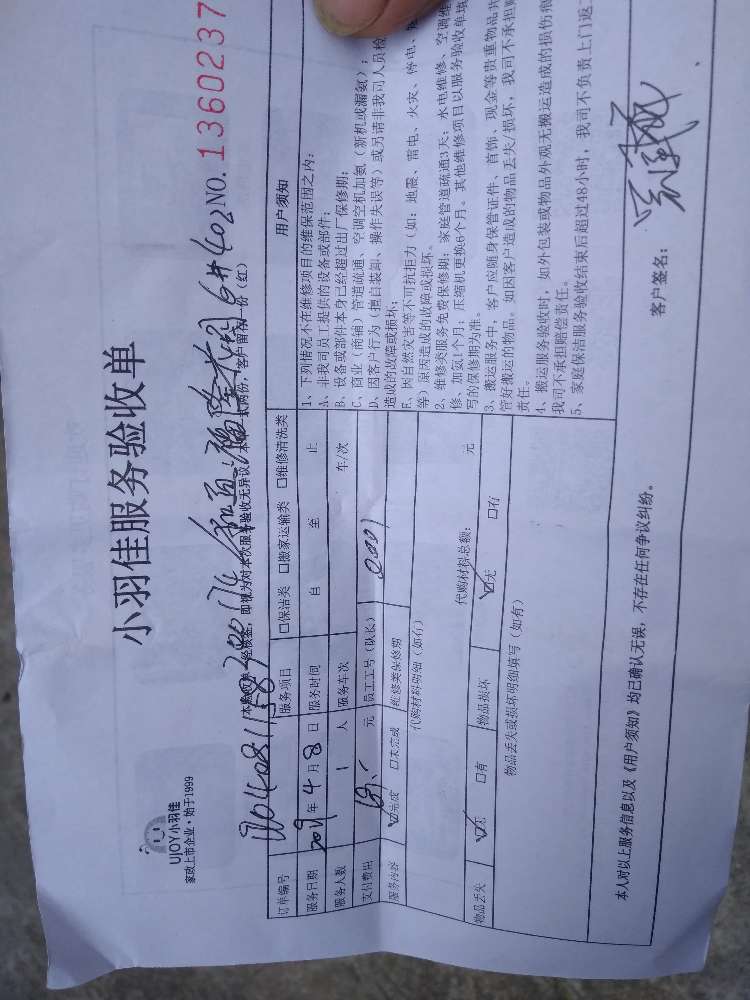 UIOY小羽佳
家政上市企业·始于1999
小羽佳服务验收单
NO. 1360237
6#402
订单编号
服务项目 □保洁类 □搬家运输类 □维修清洗类
服务日期 2019年4月8日 服务时间 自 至 止
服务人数 1 人 服务车次 车/次
支付费用 元 员工工号(队长)
服务内容 ☑完成 □未完成 维修类保修期
代购材料明细(如有) 代购材料总额: 元
物品丢失 ☑无 □有 物品损坏 ☑无 □有
物品丢失或损坏明细填写(如有)
用户须知
1、下列情况不在维修项目的维保范围之内:
A、非我司员工提供的设备或部件;
B、设备或部件本身已经超过出厂保修期;
C、商业(商铺)管道疏通、空调空机加氨(新机或漏氨);
D、因客户行为(擅自装卸、操作失误等)或另请非我司人员检
造成的故障或损坏;
E、因自然灾害等不可抗拒力(如:地震、雷电、火灾、停电、
等)原因造成的故障或损坏。
2、维修类服务免费保修期:家庭管道疏通3天;水电维修、空调维
修、加氨1个月;压缩机更换6个月。其他维修项目以服务验收单填
写的保修期为准。
3、搬运服务中,客户应随身保管证件、首饰、现金等贵重物品并
管好搬运的物品。如因客户造成的物品丢失/损坏,我司不承担赔
责任。
4、搬运服务验收时,如外包装或物品外观无搬运造成的损伤痕
我司不承担赔偿责任。
5、家庭保洁服务验收结束后超过48小时,我司不负责上门返工
本人对以上服务信息以及《用户须知》均已确认无误,不存在任何争议纠纷。
客户签名: